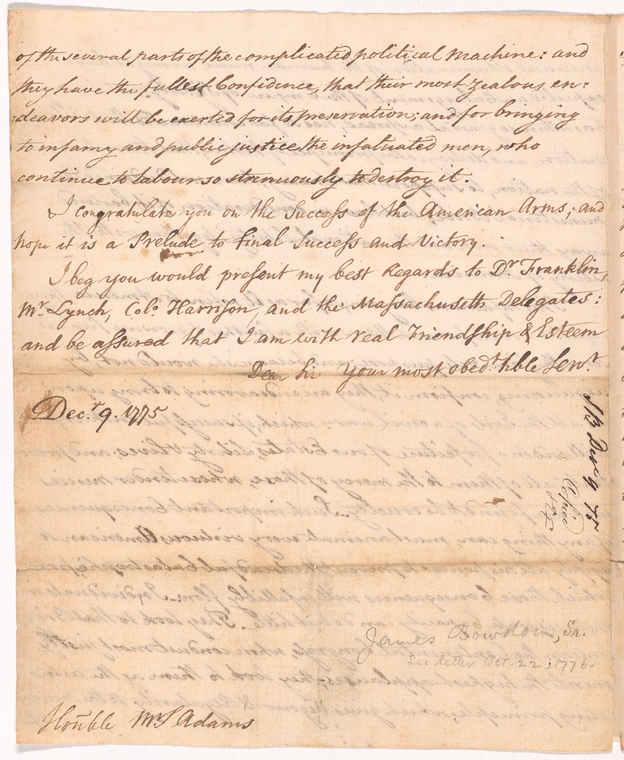 of the several parts of the complicated political Machine: and
they have the fullest Confidence, that their most zealous en-
deavors will be exerted for its preservation; and for bringing
to infamy and public justice the infatuated men, who
continue to labour so strenuously to destroy it.
I congratulate you on the Success of the American Arms; and
hope it is a Prelude to final Success and Victory.
I beg you would present my best Regards to Dr. Franklin,
Mr. Lynch, Colo. Harrison, and the Massachusetts Delegates:
and be assured that I am with real Friendship & Esteem
Dear Sir Your most obedt. hble Servt.
Decr. 9. 1775
J B Decr 9 75
Copied
James Bowdoin, Sr.
See letter Oct. 22, 1776.
Honble Mr S Adams